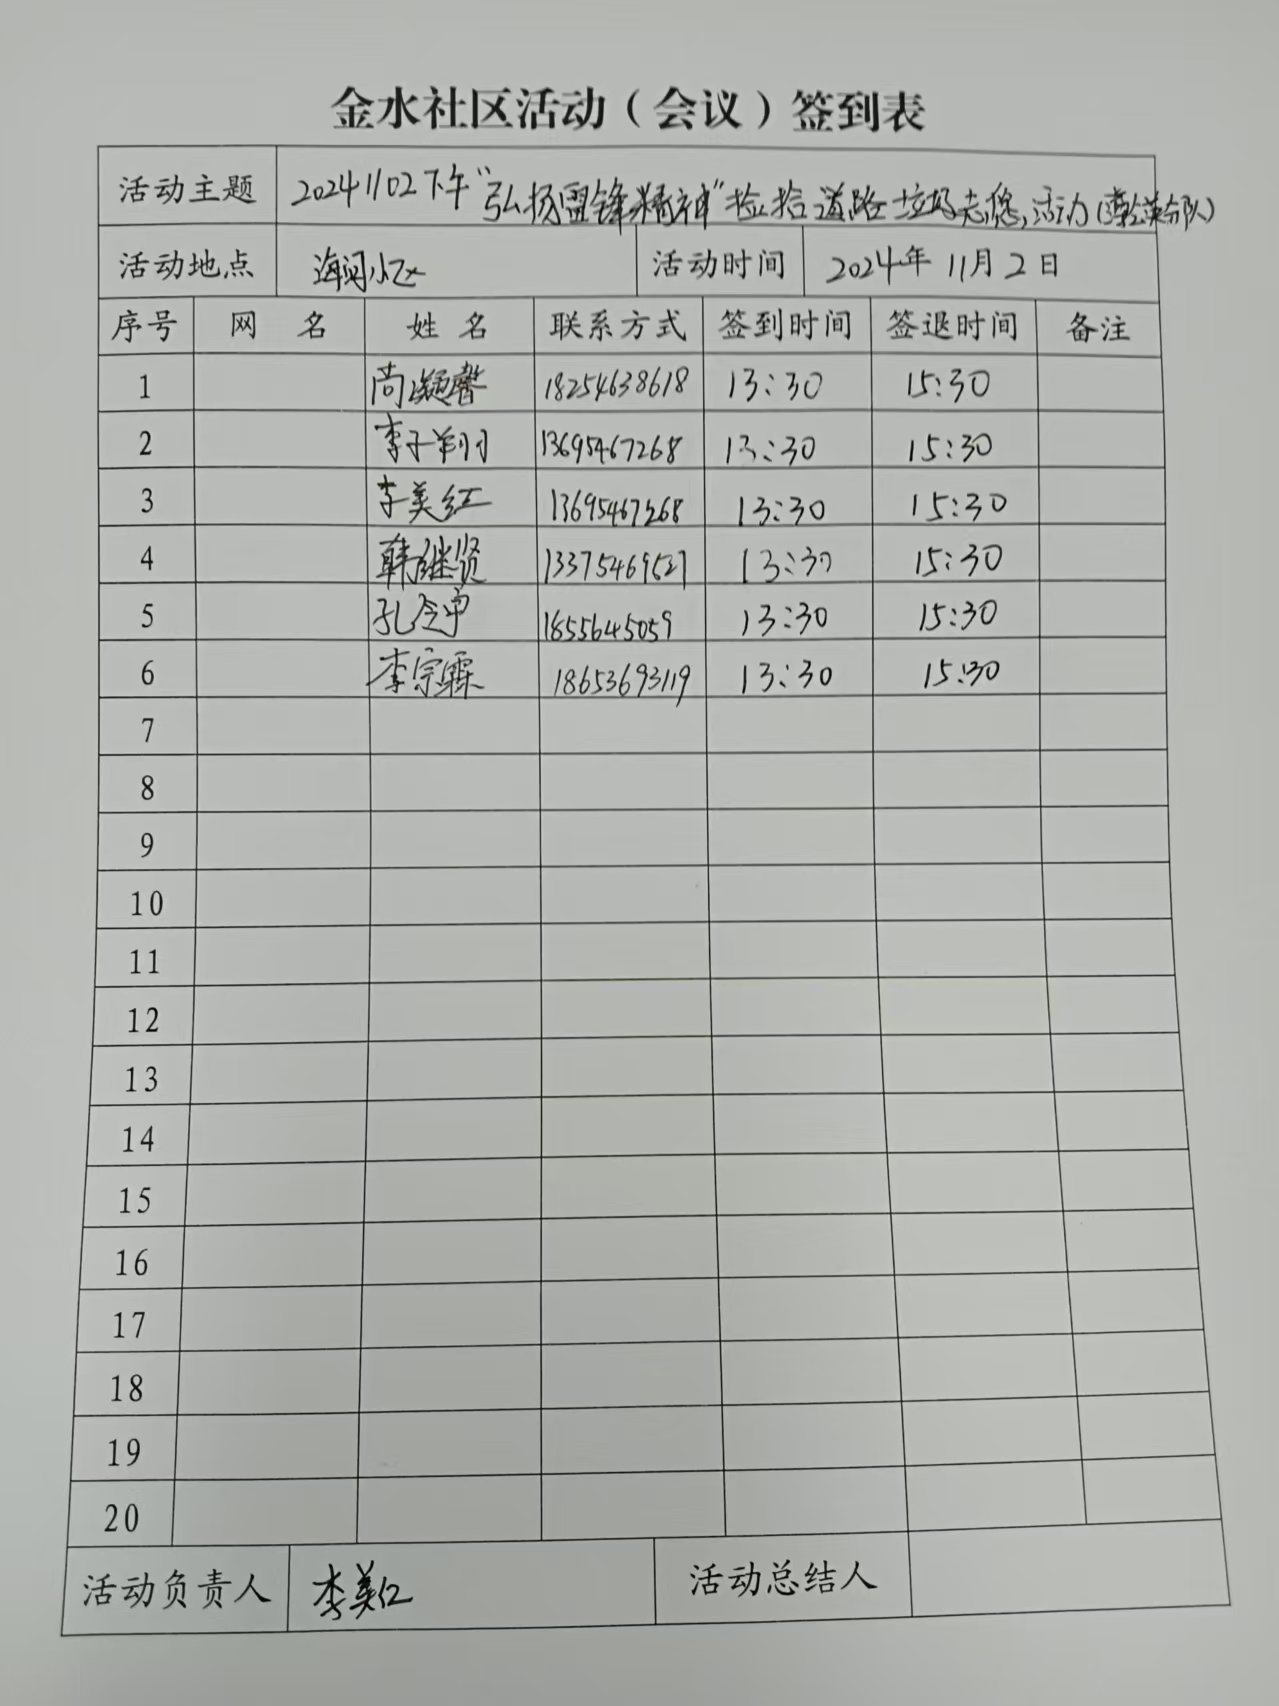 金水社区活动（会议）签到表
活动主题 20241102下午“弘扬雷锋精神”捡拾道路垃圾志愿活动
活动地点 小区 活动时间 2024年11月2日
序号 网 名 姓 名 联系方式 签到时间 签退时间 备注
1 尚凝馨 18254638618 13:30 15:30
2 李子翔 13695467268 13:30 15:30
3 李美红 13695467268 13:30 15:30
4 韩继贤 13375469527 13:30 15:30
5 孔令宇 1855645059 13:30 15:30
6 李宗霖 18653693119 13:30 15:30
7
8
9
10
11
12
13
14
15
16
17
18
19
20
活动负责人 李美红 活动总结人